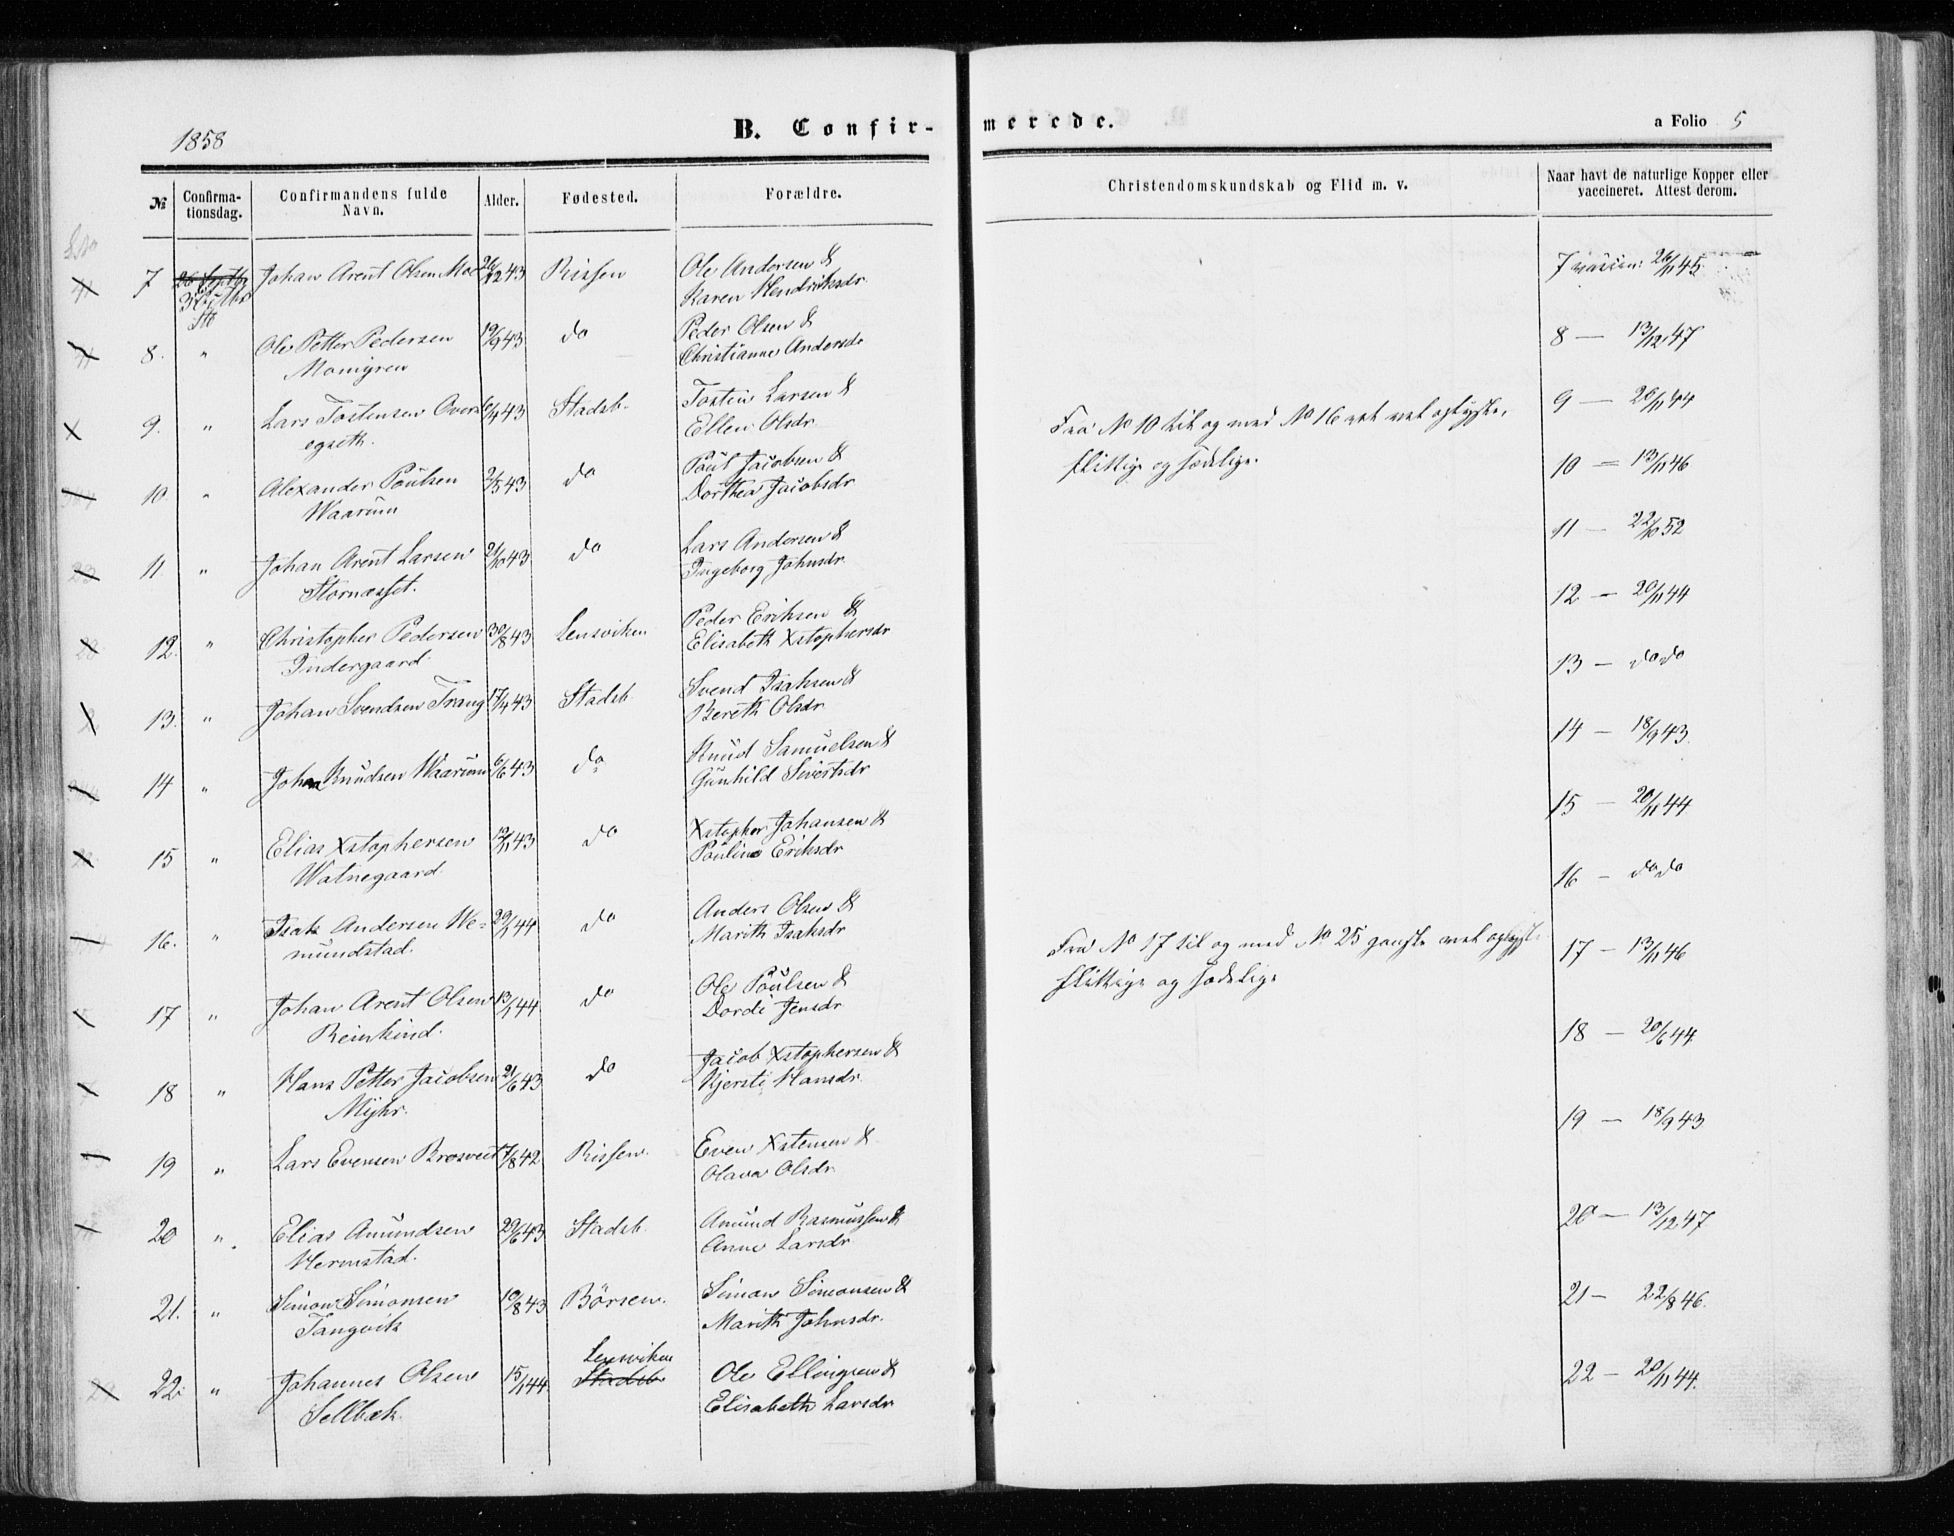 1858
B. Confir-
merede.
a Folio 5
№
Confirma-
tionsdag.
Confirmandens fulde
Navn.
Alder.
Fødested.
Forældre.
Christendomskundskab og Flid m. v.
Naar havt de naturlige Kopper eller
vaccineret. Attest derom.
7 Johan Arent Olsen Moe 26/12 43 Rissen Ole Andersen &
Karen Hendriksdr.
7 vaccin: 26/11 45
8. " Ole Petter Pedersen 19/9 43 do Peder Olsen &
Christianne Andersdr
8 — 13/12 47
9. " Lars Tostensen 43 Stadsb. Tostein Larsen &
egseth. Ellen Olsdr
9 — 20/11 44
Fra No 10 til og med No 16
flittige og sædelige.
10 " Alexander Paulsen 2/5 43 do Paul Jacobsen &
Waarum Dorthea Jacobsdr
10 — 13/11 46
11 " Johan Arent Larsen 21/10 43 do Lars Andersen &
Stornæsset. Ingeborg Johnsdr.
11 — 22/10 52
12. " Christopher Pedersen 30/8 43 Lensviken Peder Eriksen &
Indergaard. Elisabeth Xstophersdr
12 — 20/11 44
13. " Johan Svendsen Trang 17/4 43 Stadsb. Svend Isaksen &
Bereth Olsdr
13 — do do
14 " Johan Knudsen Waarum 6/6 43 do Knud Samuelsen &
Gunhild Sivertsdr
14 — 18/9 43.
15 " Elias Xstophersen 43 do Xstopher Johansen &
Pauline Eriksdr
15 — 20/11 44
16. " Isak Andersen We= 29/1 44 do Anders Olsen &
mundstad. Marith Isaksdr
16 — do do
Fra No 17 til og med No 25 ganske
flittige og sædelige
17 " Johan Arent Olsen 13/1 44 do Ole Paulsen &
Reinkind. Dordi Jensdr
17 — 13/11 46
18 " Hans Petter Jacobsen 21/6 43 do Jacob Xstophersen &
Myhr. Kjersti Hansdr.
18 — 20/6 44
19 " Lars Evensen 7/8 42 Rissen. Even Xstensen &
Olava Olsdr
19 — 18/9 43
20 " Elias Amundsen 29/6 43 Stadsb. Amund Rasmussen &
Hermstad. Anne Larsdr
20 — 13/12 47
21. " Simon Simonsen 10/8 43 Børsen. Simon Simonsen &
Tangvik Marith Johnsdr.
21 — 22/8 46.
Lensviken
22. " Johannes Olsen 15/1 44 Stadsb Ole Ellingsen &
Sellbæk. Elisabeth Larsdr
22 — 20/11 44.